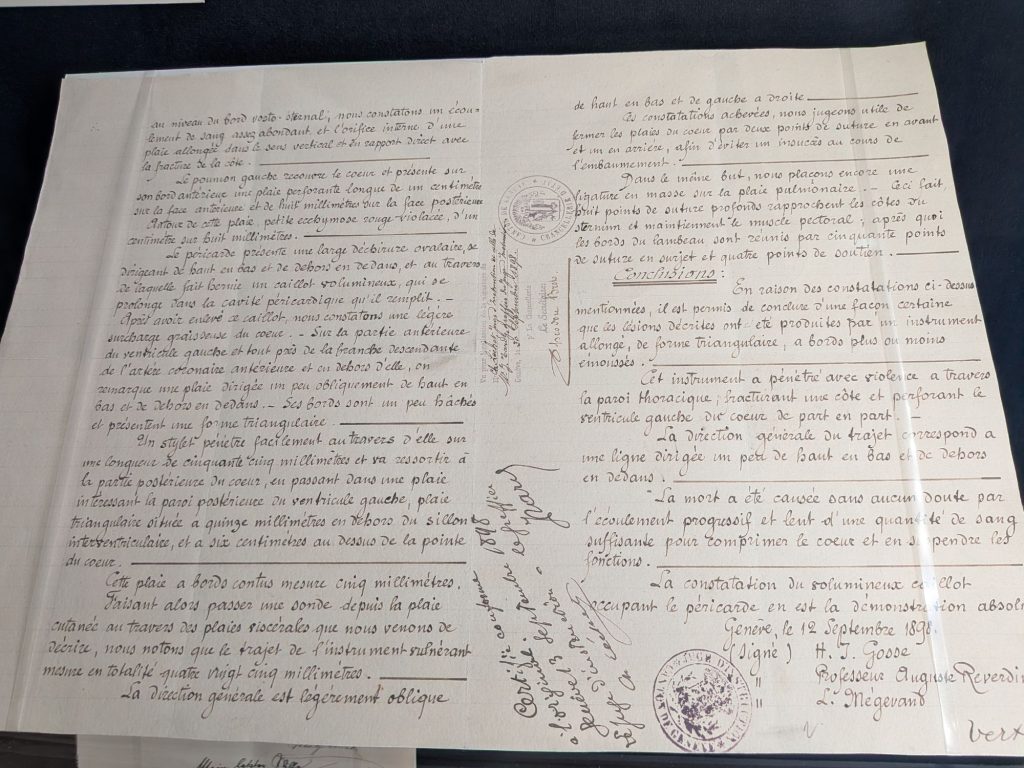 au niveau du bord costo-sternal; nous constatons un écou-
lement de sang assez abondant et l'orifice interne d'une
plaie allongée dans le sens vertical et en rapport direct avec
la fracture de la côte.
Le poumon gauche recouvre le coeur et présente sur
son bord antérieur une plaie perforante longue de un centimètre
sur la face antérieure et de huit millimètres sur la face postérieure
Autour de cette plaie, petite ecchymose rouge-violacée, d'un
centimètre sur huit millimètres.
Le péricarde présente une large déchirure ovalaire, se
dirigeant de haut en bas et de dehors en dedans, et au travers
de laquelle fait hernie un caillot volumineux, qui se
prolonge dans la cavité péricardique qu'il remplit. —
Après avoir enlevé ce caillot, nous constatons une légère
surcharge graisseuse du coeur. — Sur la partie antérieure
du ventricule gauche et tout près de la branche descendante
de l'artère coronaire antérieure et en dehors d'elle, on
remarque une plaie dirigée un peu obliquement de haut en
bas et de dehors en dedans. — Ses bords sont un peu hachés
et présentent une forme triangulaire.
Un stylet pénètre facilement au travers d'elle sur
une longueur de cinquante cinq millimètres et va ressortir à
la partie postérieure du coeur, en passant dans une plaie
intéressant la paroi postérieure du ventricule gauche, plaie
triangulaire située à quinze millimètres en dehors du sillon
interventriculaire, et à six centimètres au dessus de la pointe
du coeur.
Cette plaie a bords contus mesure cinq millimètres.
Faisant alors passer une sonde depuis la plaie
cutanée au travers des plaies viscérales que nous venons de
décrire, nous notons que le trajet de l'instrument vulnérant
mesure en totalité quatre vingt cinq millimètres.
La direction générale est légèrement oblique
Certifié conforme
à l'original
Genève 13 septembre 1898
de haut en bas et de gauche a droite
Ces constatations achevées, nous jugeons utile de
fermer les plaies du coeur par deux points de suture en avant
et un en arrière, afin d'éviter un insuccès au cours de
l'embaumement.
Dans le même but, nous plaçons encore une
ligature en masse sur la plaie pulmonaire. — Ceci fait,
huit points de suture profonds rapprochent les côtes du
sternum et maintiennent le muscle pectoral; après quoi
les bords du lambeau sont réunis par cinquante points
de suture en surjet et quatre points de soutien.
Conclusions:
En raison des constatations ci-dessus
mentionnées, il est permis de conclure d'une façon certaine
que les lésions décrites ont été produites par un instrument
allongé, de forme triangulaire, a bords plus ou moins
émoussés.
Cet instrument a pénétré avec violence a travers
la paroi thoracique, fracturant une côte et perforant le
ventricule gauche du coeur de part en part. —
La direction générale du trajet correspond a
une ligne dirigée un peu de haut en bas et de dehors
en dedans.
La mort a été causée sans aucun doute par
l'écoulement progressif et lent d'une quantité de sang
suffisante pour comprimer le coeur et en suspendre les
fonctions.
La constatation du volumineux caillot
occupant le péricarde en est la démonstration absol
Genève, le 12 Septembre 1898.
(Signé) H. J. Gosse
" Professeur Auguste Reverdin
" L. Mégevand